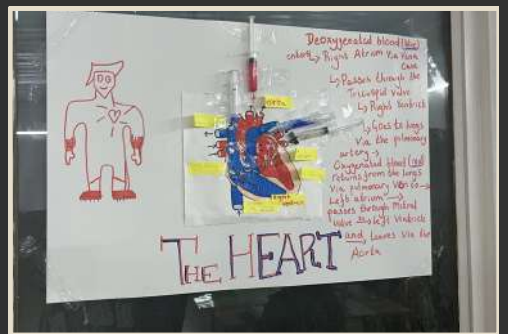 Deoxygenated blood (blue)
enters ↳ Right Atrium via Vena
Cava
↳ Passes through the
Tricuspid Valve
↳ Right Ventricle
↳ Goes to lungs
Via the pulmonary
artery
Oxygenated blood (red)
returns from the lungs
via pulmonary Vein to →
Left atrium →
passes through Mitral
Valve → Left Ventricle
and Leaves via the
Aorta
THE HEART